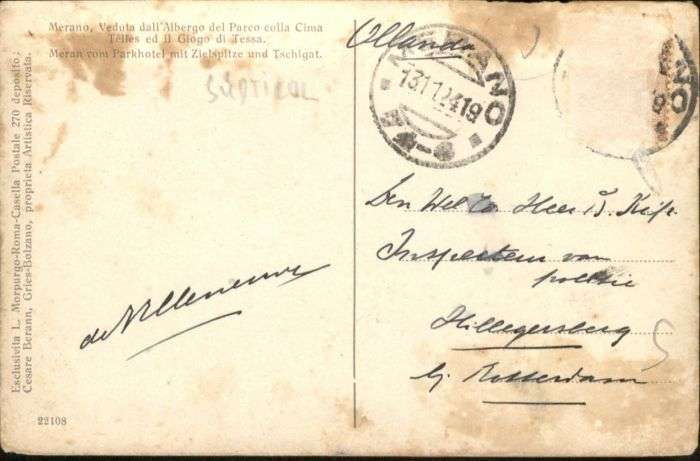 Merano, Veduta dall'Albergo del Parco colla Cima
Telles ed il Giogo di Tessa.
Meran vom Parkhotel mit Zielspitze und Tschigat.
Esclusivita L. Morpurgo-Roma-Casella Postale 270 deposito:
Cesare Berann, Gries-Bolzano, proprieta Artistica Riservata.
Ollanda
MERANO
13112419
de Villeneuve
Den Wel Ed Heer
Inspecteur van
politie
Hillegersberg
bij Rotterdam
22108